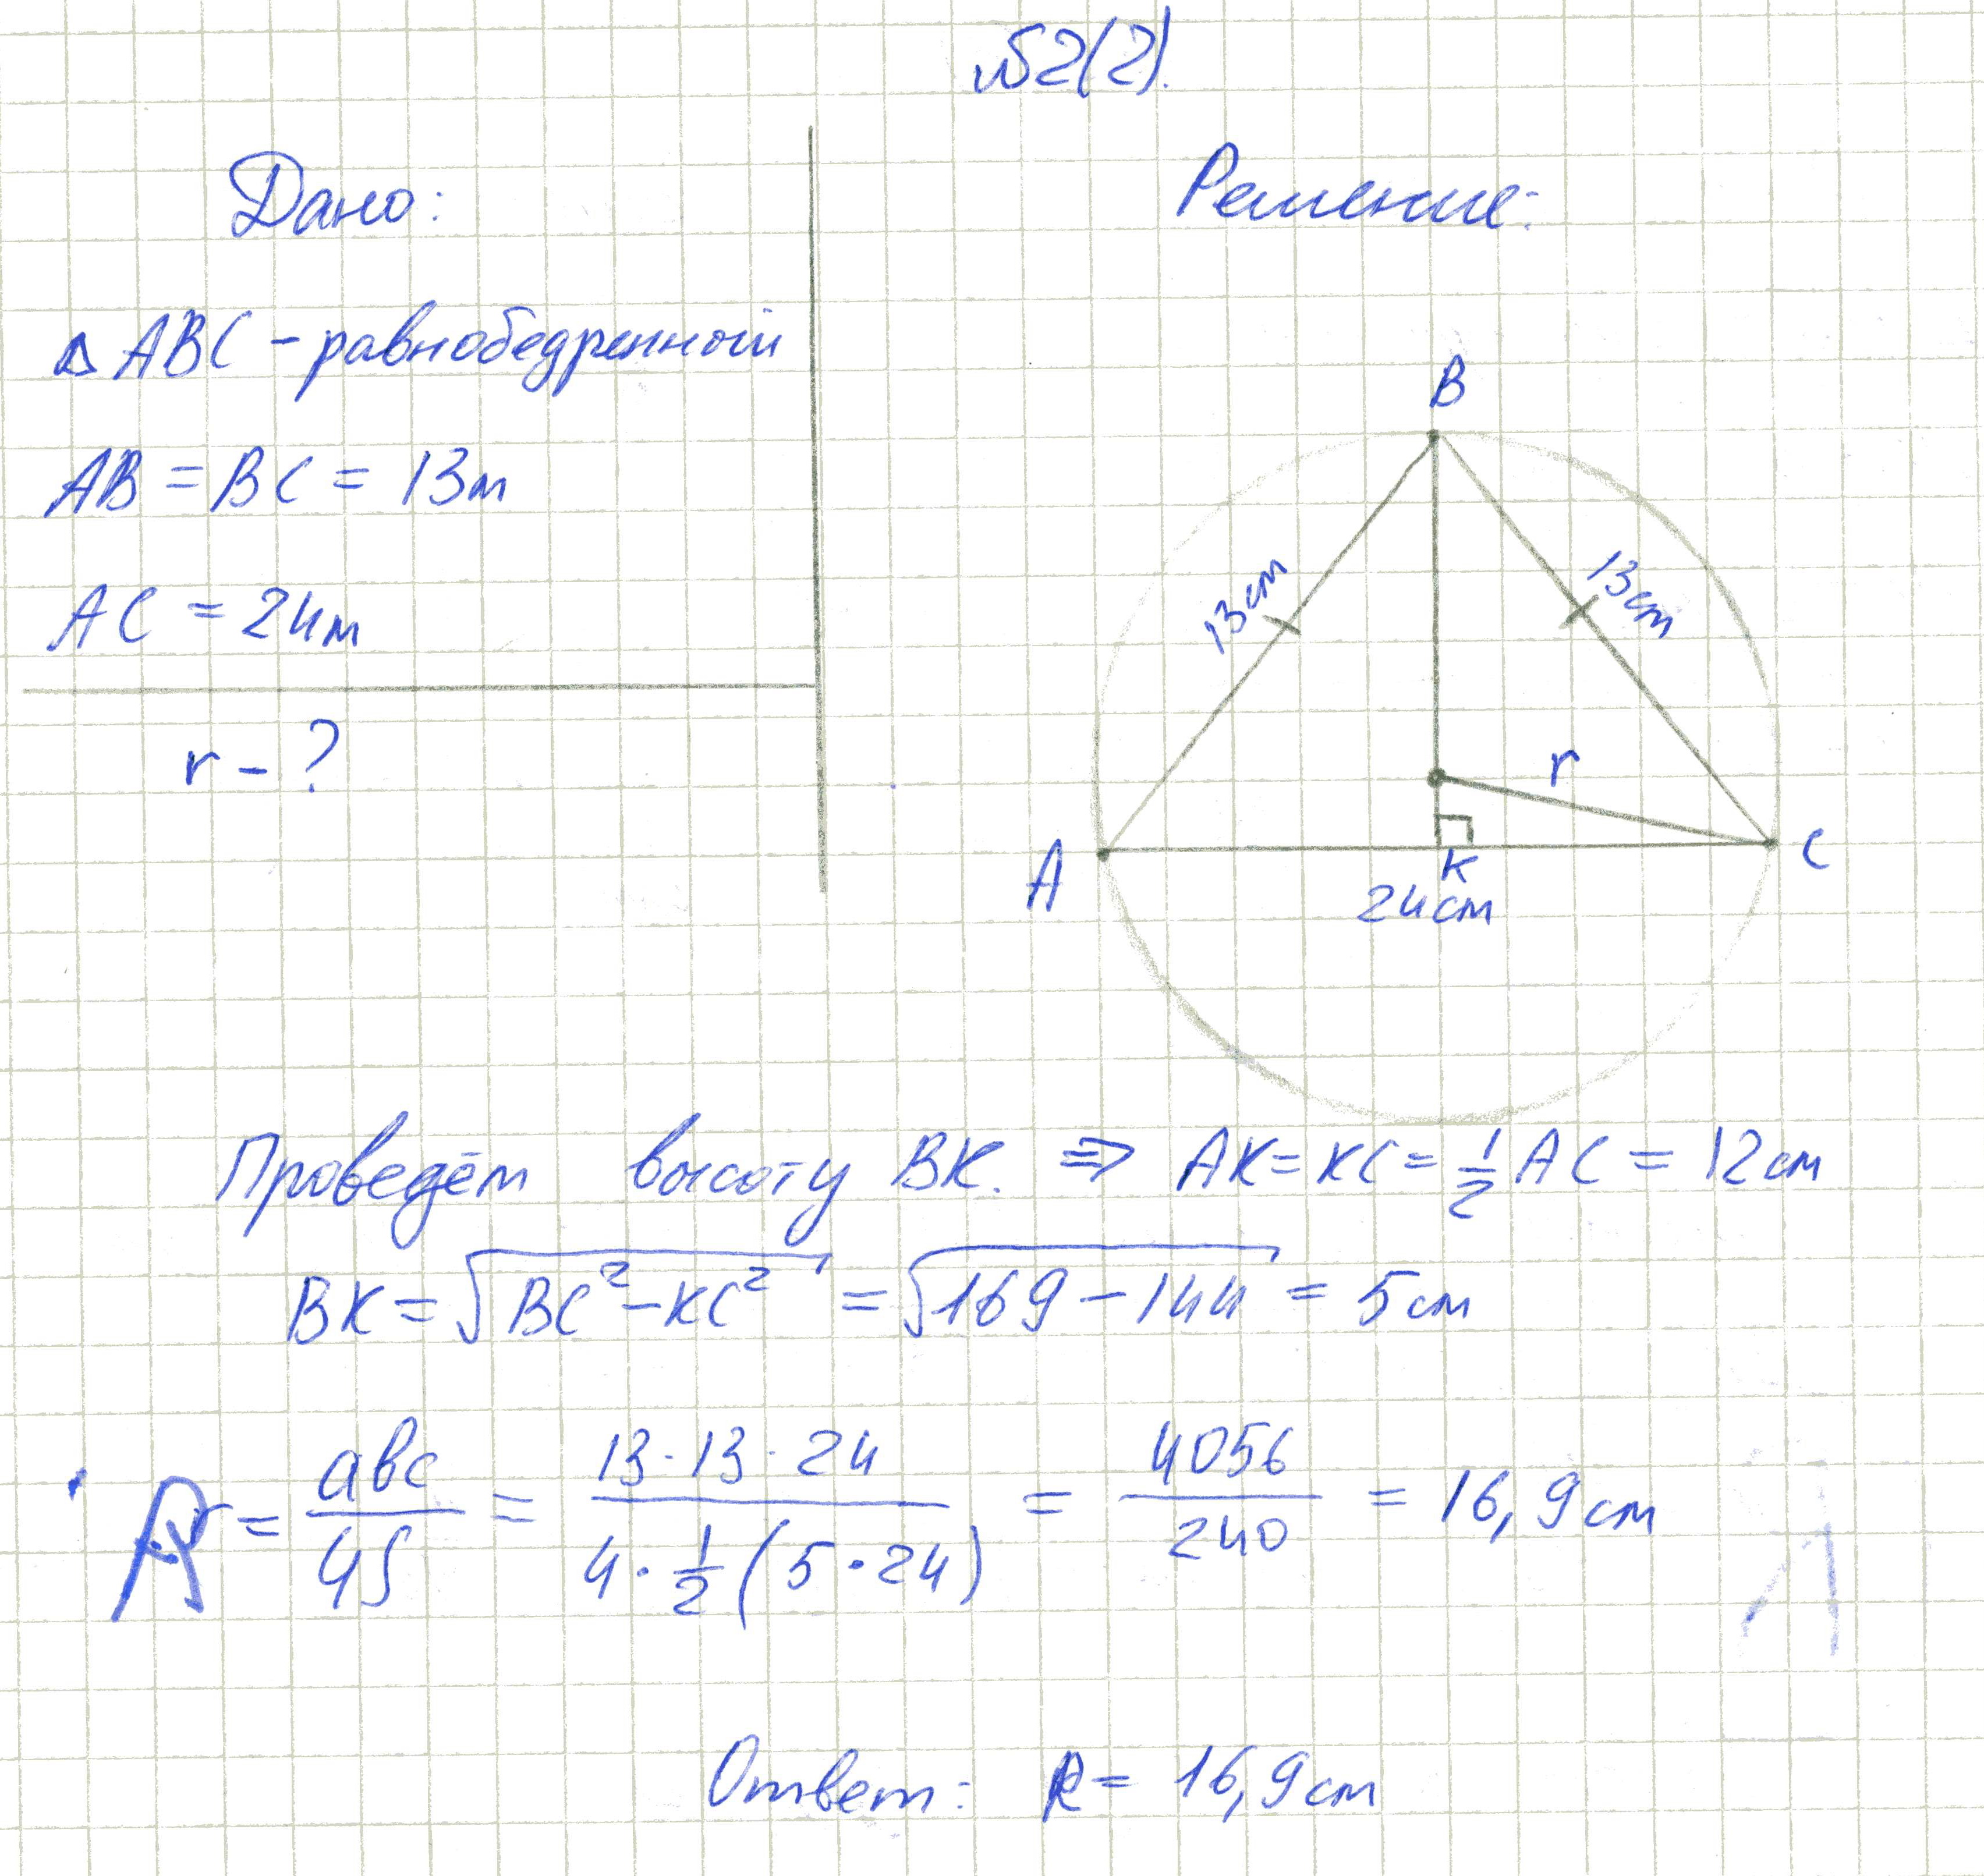 №2(2).
Дано:
△ABC - равнобедренный
AB = BC = 13м
AC = 24м
r - ?
Решение:
B
13см
13см
r
A
K
C
24см
Проведём высоту BK. ⇒ AK = KC = 1/2 AC = 12см
BK = √(BC² - KC²) = √(169 - 144) = 5см
R = abc/4S = 13·13·24/4·1/2(5·24) = 4056/240 = 16,9см
Ответ: R = 16,9см